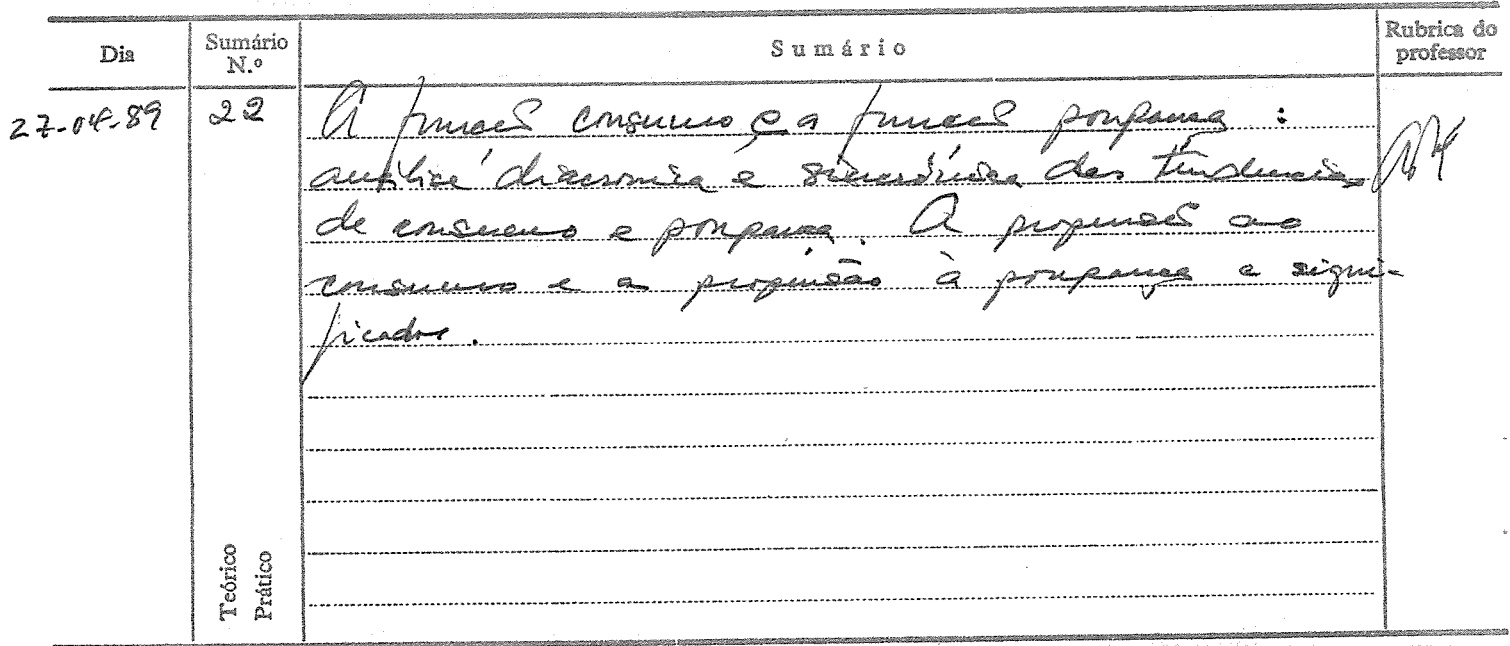 Dia
Sumário N.º
Sumário
Rubrica do professor
27-04-89
22
A função consumo e a função poupança :
análise diacrónica e sincrónica das tendências
de consumo e poupança. A propensão ao
consumo e a propensão à poupança e signi-
ficados.
Teórico
Prático